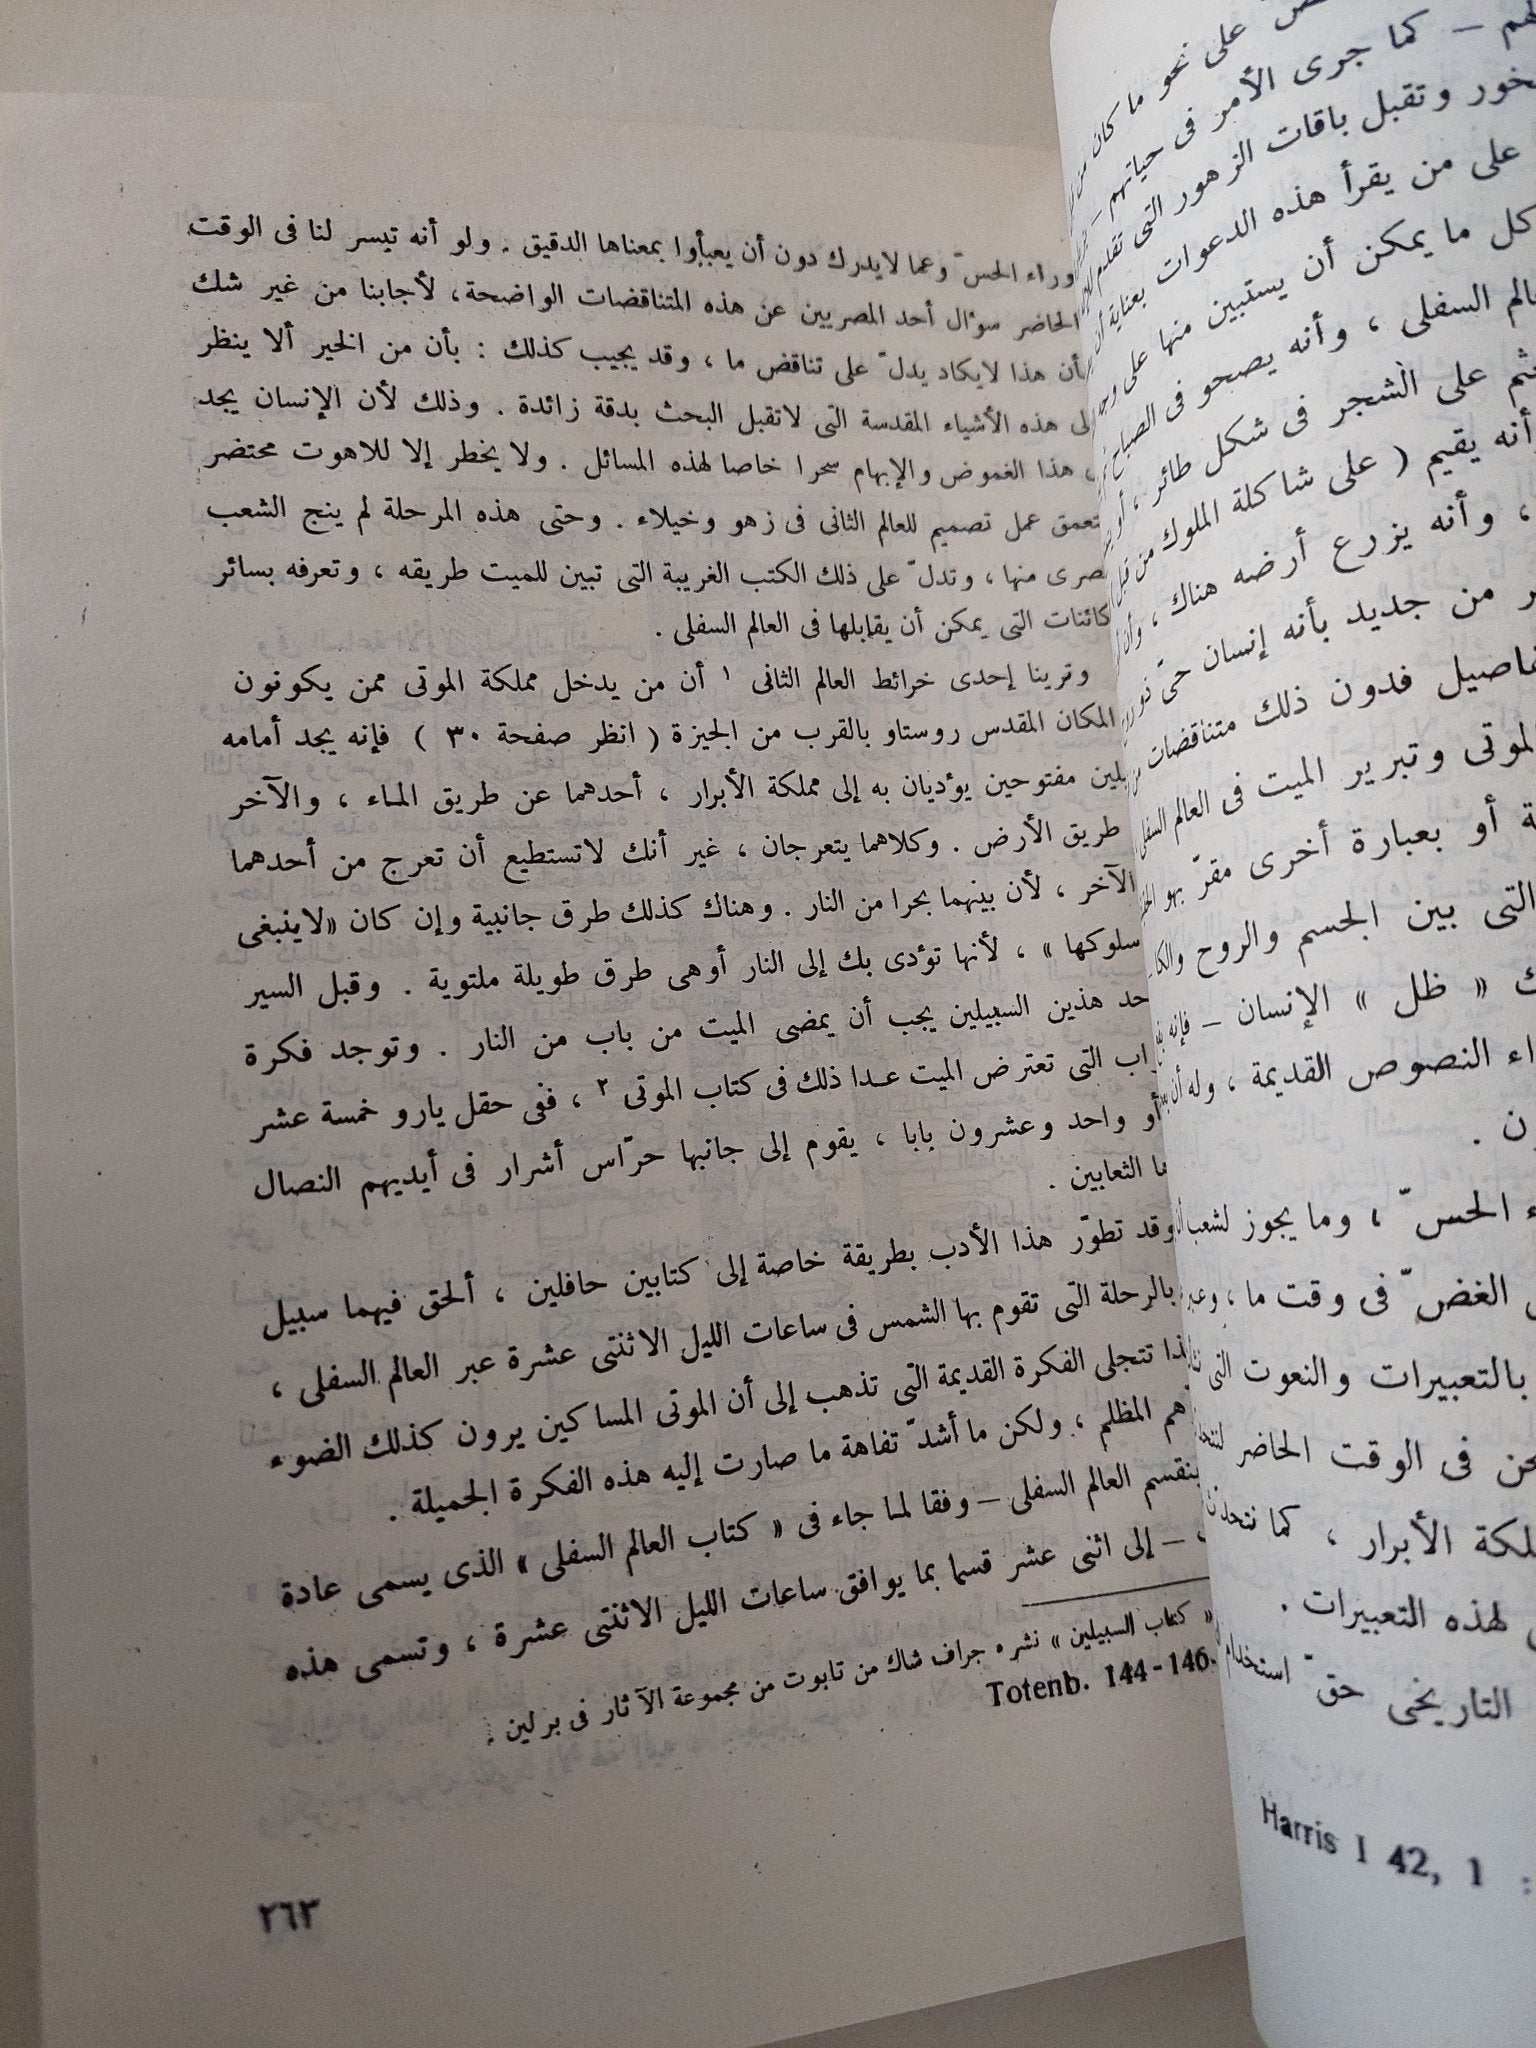 ض على نحو ما كان من
لهم – كما جرى الأمر فى حياتهم –
خور وتقبل باقات الزهور التى تقدم
على من يقرأ هذه الدعوات بعناية أن
كل ما يمكن أن يستبين منها على
عالم السفلى ، وأنه يصحو فى الصباح
ثم على الشجر فى شكل طائر ، أو
أنه يقيم ( على شاكلة الملوك من
، وأنه يزرع أرضه هناك ،
ر من جديد بأنه إنسان حىّ
فاصيل فدون ذلك متناقضات
لموتى وتبرير الميت فى العالم السفلى
ة أو بعبارة أخرى مقرّ
التى بين الجسم والروح
ك « ظل » الإنسان – فإنه
اء النصوص القديمة ، وله أن
ن .
ء الحسّ ، وما يجوز لشعب
الغضّ فى وقت ما ،
بالتعبيرات والنعوت التى
حن فى الوقت الحاضر
لكة الأبرار ، كما نتحدث
لهذه التعبيرات .
التاريخى حقّ استخدام
Harris I 42, 1 :
وراء الحسّ وعما لايدرك دون أن يعبأوا بمعناها الدقيق . ولو أنه تيسر لنا فى الوقت
الحاضر سؤال أحد المصريين عن هذه المتناقضات الواضحة، لأجابنا من غير شك
بأن هذا لايكاد يدلّ على تناقض ما ، وقد يجيب كذلك : بأن من الخير ألا ينظر
لى هذه الأشياء المقدسة التى لاتقبل البحث بدقة زائدة . وذلك لأن الإنسان يجد
هذا الغموض والإبهام سحرا خاصا لهذه المسائل . ولا يخطر إلا للاهوت محتضر
تعمق عمل تصميم للعالم الثانى فى زهو وخيلاء . وحتى هذه المرحلة لم ينج الشعب
صرى منها ، وتدلّ على ذلك الكتب الغريبة التى تبين للميت طريقه ، وتعرفه بسائر
كائنات التى يمكن أن يقابلها فى العالم السفلى .
وترينا إحدى خرائط العالم الثانى ١ أن من يدخل مملكة الموتى ممن يكونون
المكان المقدس روستاو بالقرب من الجيزة ( انظر صفحة ٣٠ ) فإنه يجد أمامه
يلين مفتوحين يؤديان به إلى مملكة الأبرار ، أحدهما عن طريق الماء ، والآخر
طريق الأرض . وكلاهما يتعرجان ، غير أنك لاتستطيع أن تعرج من أحدهما
الآخر ، لأن بينهما بحرا من النار . وهناك كذلك طرق جانبية وإن كان «لاينبغى
سلوكها » ، لأنها تؤدى بك إلى النار أوهى طرق طويلة ملتوية . وقبل السير
حد هذين السبيلين يجب أن يمضى الميت من باب من النار . وتوجد فكرة
اب التى تعترض الميت عدا ذلك فى كتاب الموتى ٢ ، ففى حقل يارو خمسة عشر
أو واحد وعشرون بابا ، يقوم إلى جانبها حرّاس أشرار فى أيديهم النصال
ا الثعابين .
وقد تطوّر هذا الأدب بطريقة خاصة إلى كتابين حافلين ، ألحق فيهما سبيل
بالرحلة التى تقوم بها الشمس فى ساعات الليل الاثنتى عشرة عبر العالم السفلى ،
ذا تتجلى الفكرة القديمة التى تذهب إلى أن الموتى المساكين يرون كذلك الضوء
هم المظلم ، ولكن ما أشدّ تفاهة ما صارت إليه هذه الفكرة الجميلة .
ينقسم العالم السفلى – وفقا لما جاء فى « كتاب العالم السفلى » الذى يسمى عادة
– إلى اثنى عشر قسما بما يوافق ساعات الليل الاثنتى عشرة ، وتسمى هذه
« كتاب السبيلين » نشره جراف شاك من تابوت من مجموعة الآثار فى برلين .
Totenb. 144-146.
٢٦٣